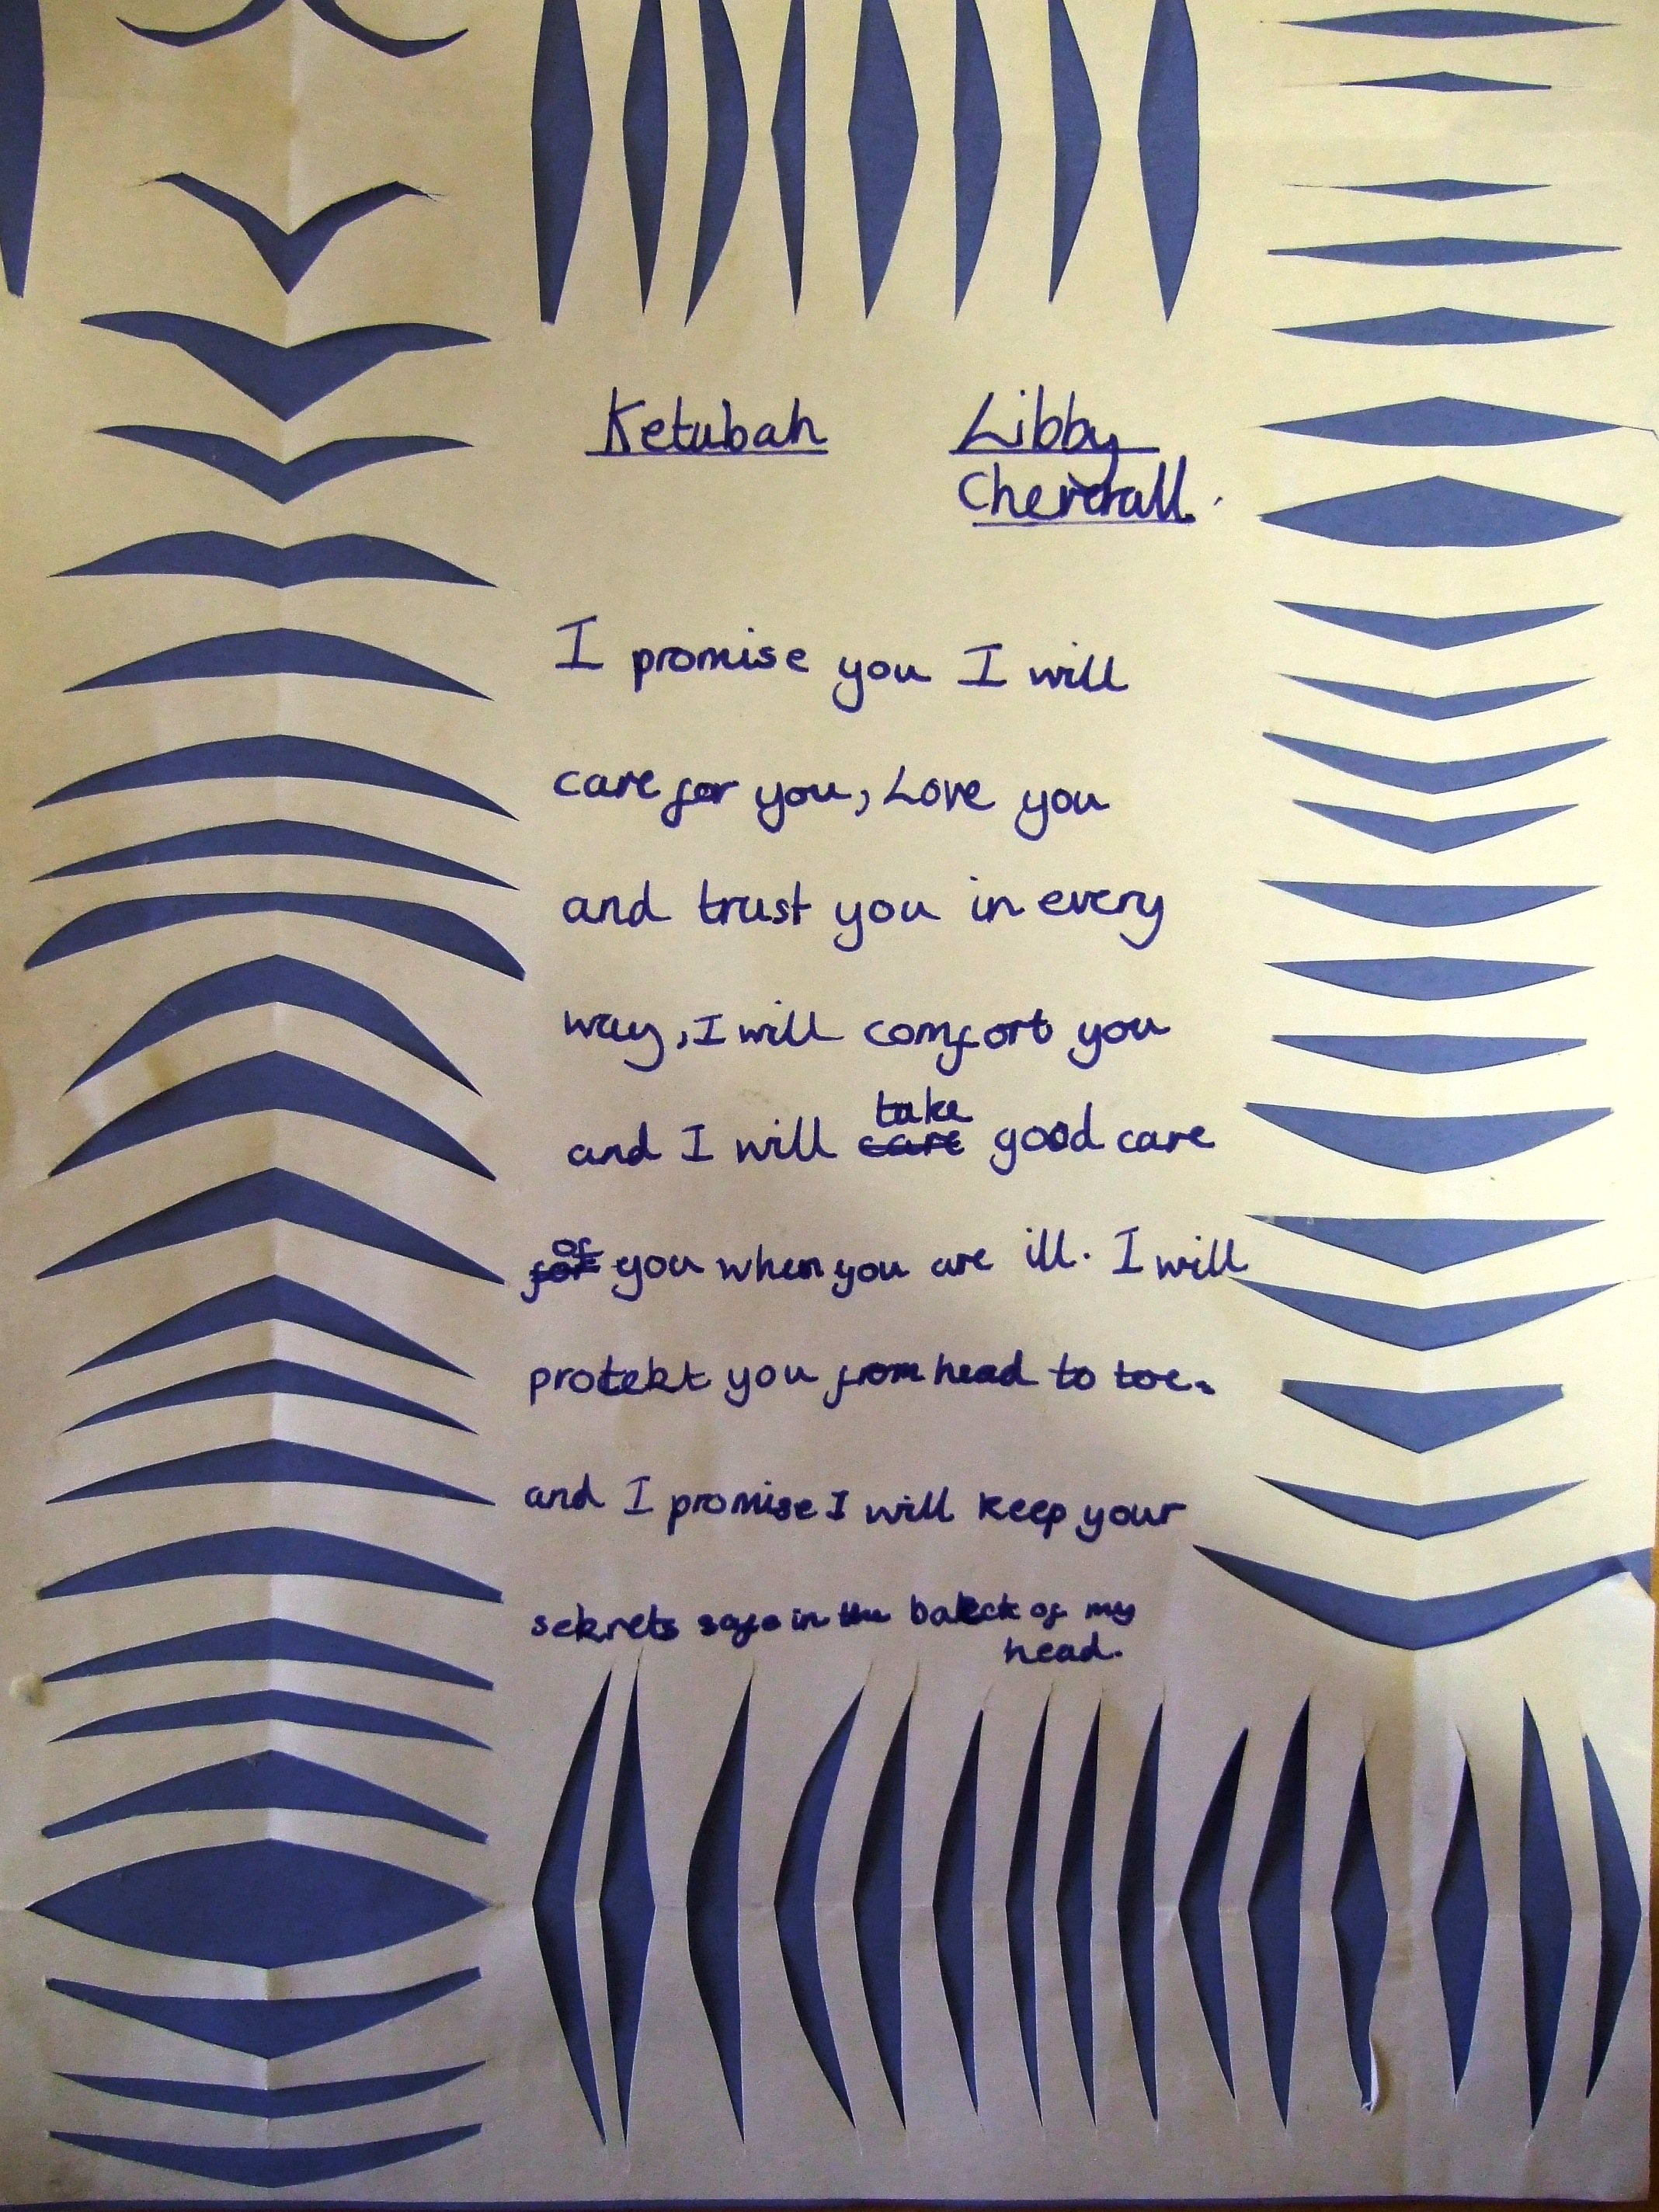 Ketubah Libby
I promise you I will
care for you, Love you
and trust you in every
way, I will comfort you
take
and I will care good care
of
for you when you are ill. I will
protekt you from head to toe.
and I promise I will keep your
sekrets safe in the back of my
head.